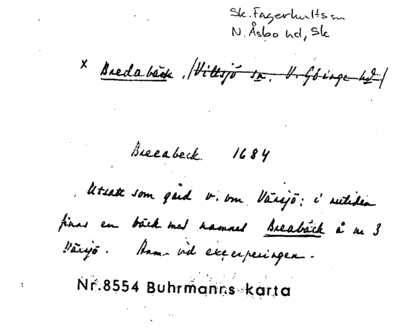 Sk. Fagerhults sn
N. Åsbo hd, Sk
x Bredabäck, /Vittsjö sn, V. Göinge hd/
Breeabeck 1684
Utsatt som gård v. om Värsjö; i nutiden
finns en bäck med namnet Breabäck å nr 3
Värsjö. Anm. vid excerperingen.
Nr.8554 Buhrmanns karta